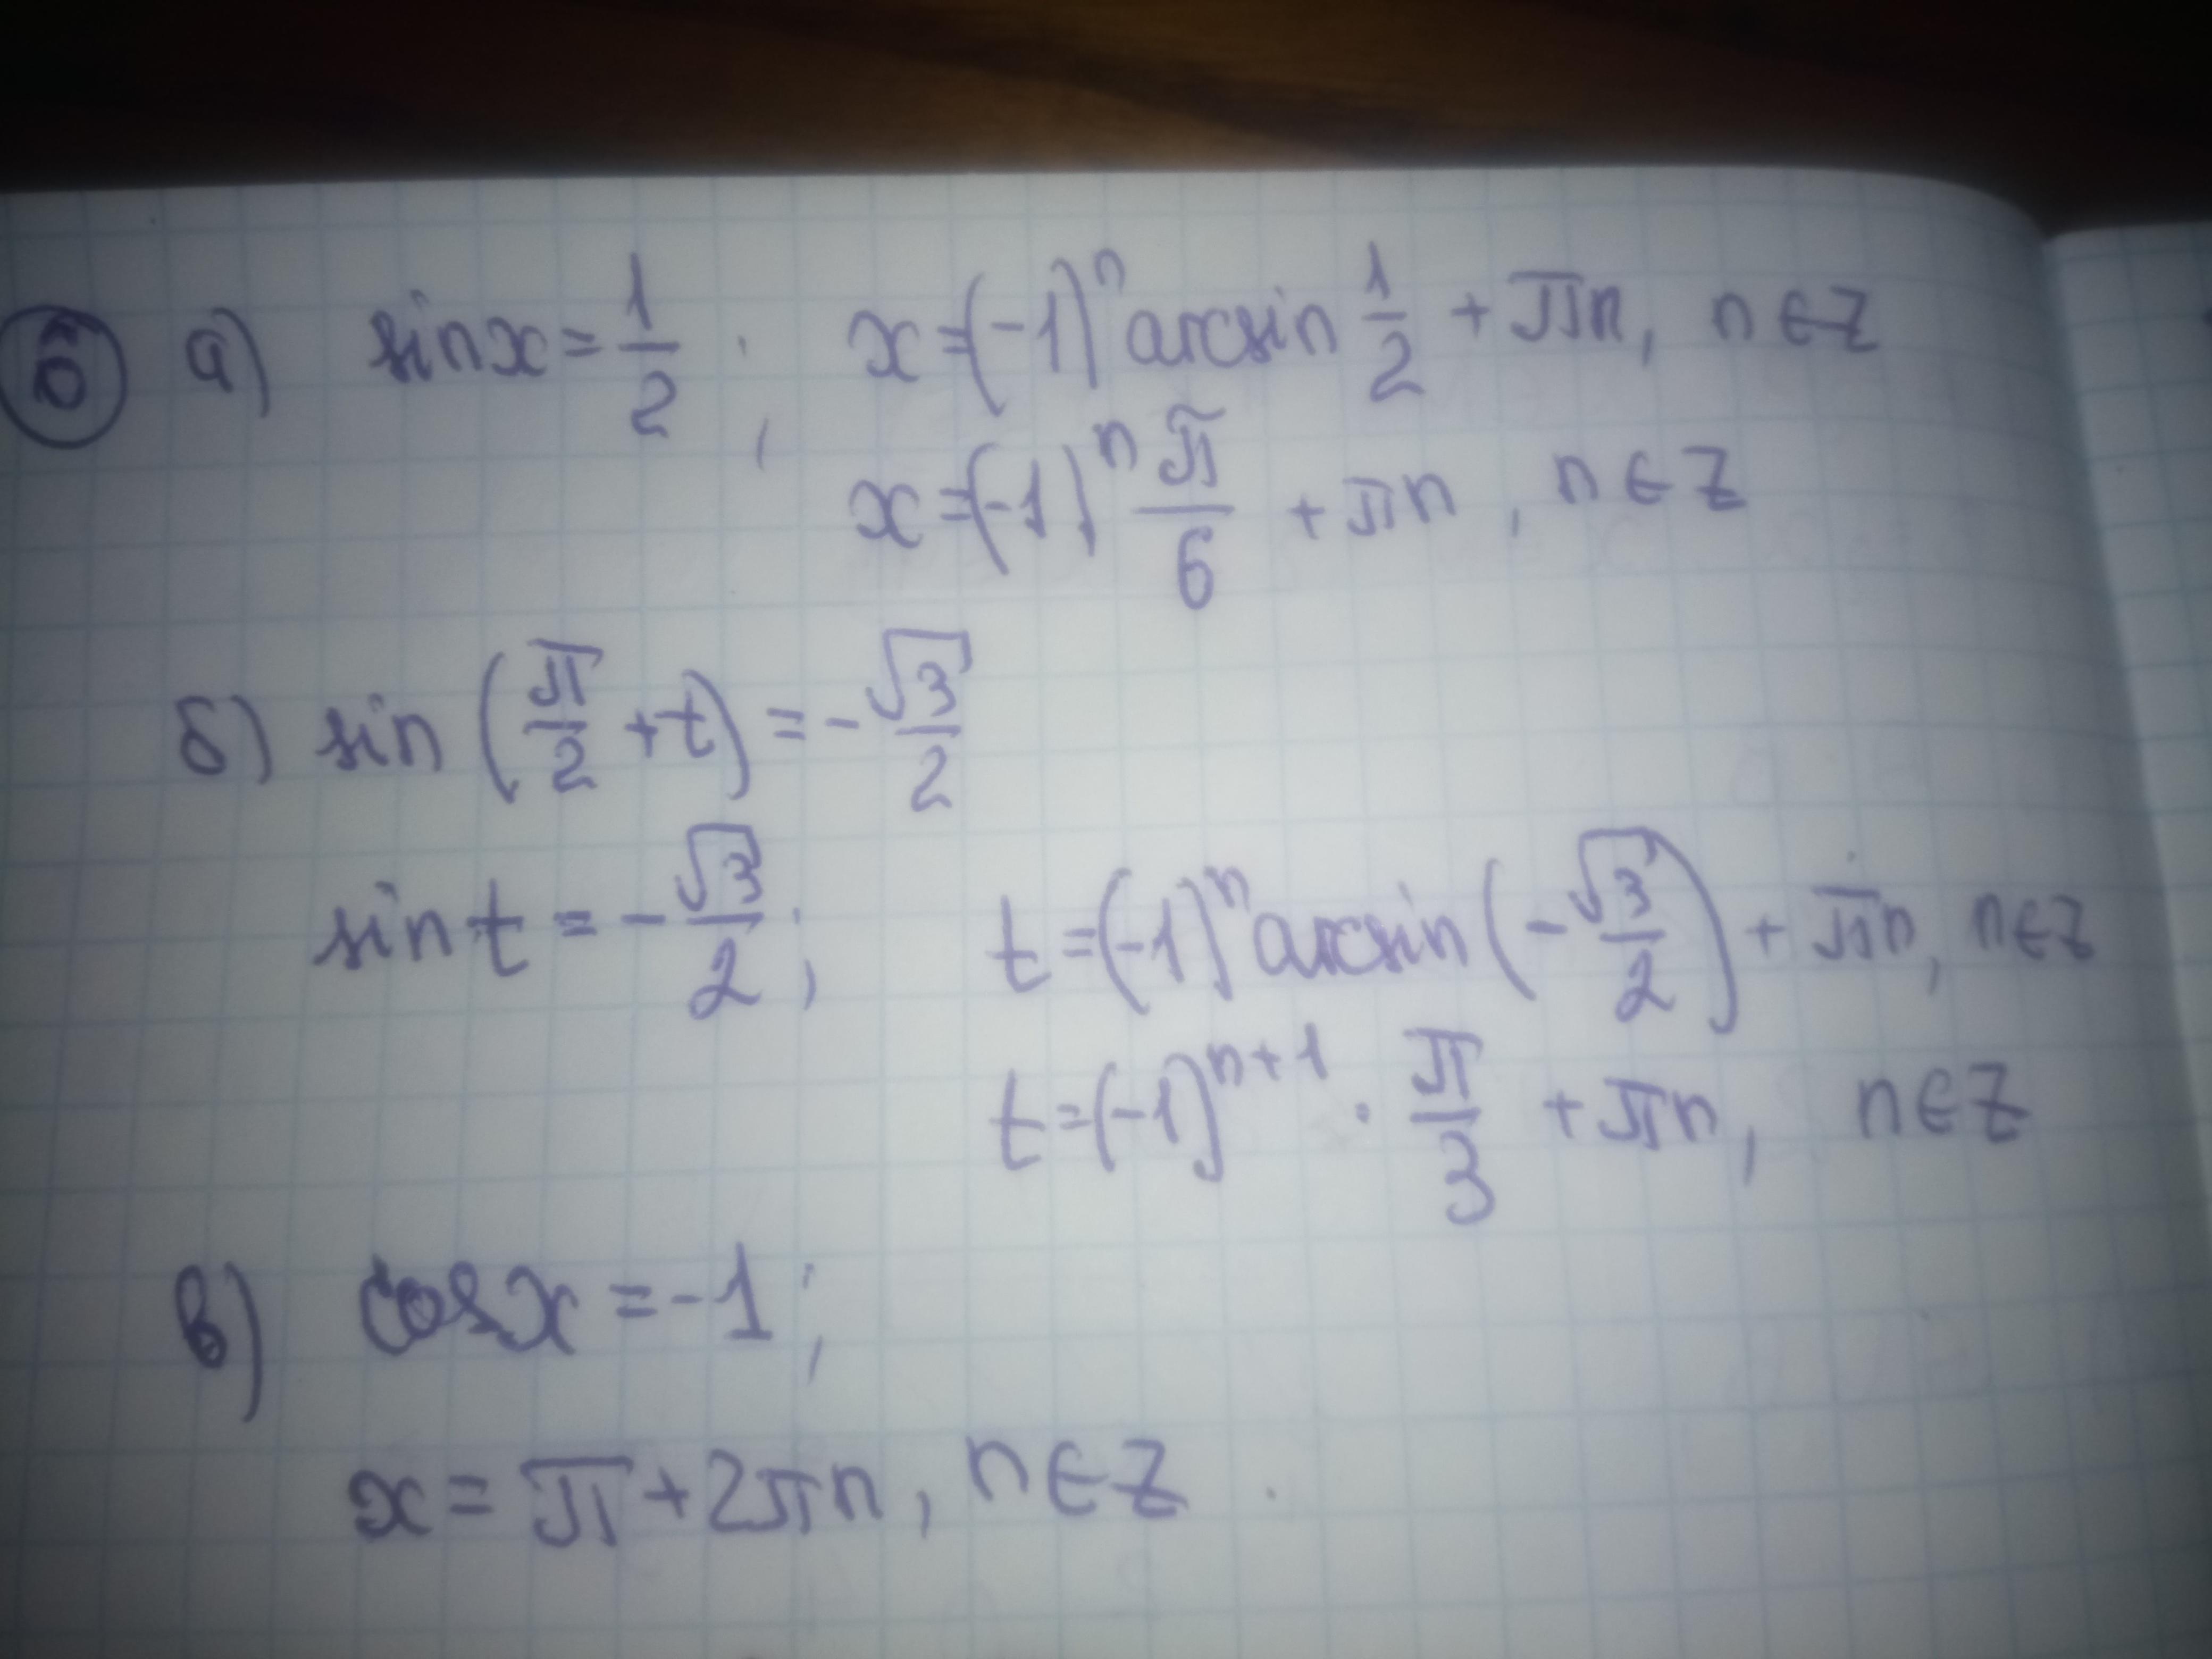 6 а) sin x = 1/2 ; x = (-1)ⁿ arcsin 1/2 + πn, n ∈ Z
x = (-1)ⁿ π/6 + πn, n ∈ Z
б) sin (π/2 + t) = - √3/2
sin t = - √3/2 ; t = (-1)ⁿ arcsin (- √3/2) + πn, n ∈ Z
t = (-1)ⁿ⁺¹ · π/3 + πn, n ∈ Z
в) cos x = -1 ;
x = π + 2πn, n ∈ Z .